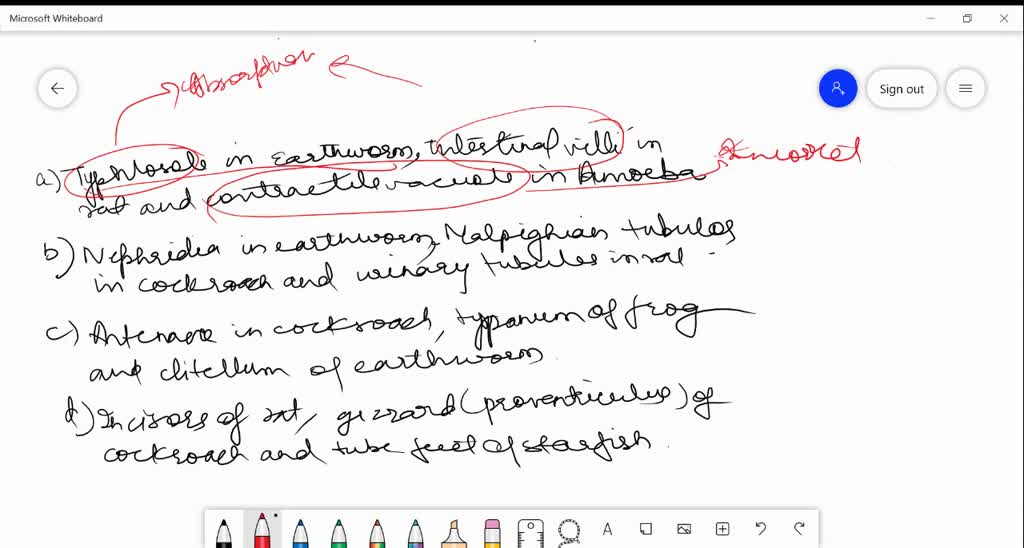 Microsoft Whiteboard
Sign out
Absorption
a) Typhlosole in earthworm, Intestinal villi in
rat and contractile vacuole in Amoeba
Incorrect
b) Nephridia in earthworm, Malpighian tubules
in cockroach and urinary tubules in rat
c) Antennae in cockroach, typanum of frog
and clitellum of earthworm.
d) Incisors of rat, gizzard (proventiculus) of
cockroach and tube feet of starfish.
A